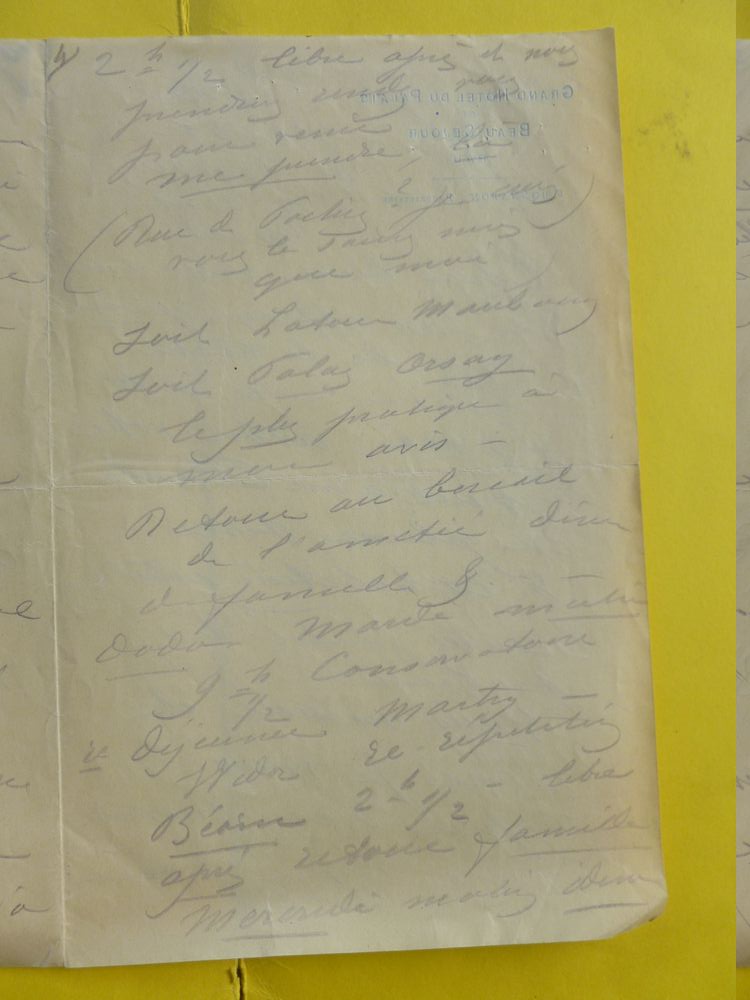 2 h 1/2 libre après et nous
prendrez rendez vous
pour venir
me prendre, là
(Rue de je suis
vous le savez mieux
que moi)
soit Latour Maubourg
soit Palais Orsay
le plus pratique à
mon avis –
Retour au bercail
de l'amitié diner
de famille &
dodo. Mardi matin
9 h 1/2 Conservatoire
Déjeuner Marty –
Widor Re-répétition
2 h 1/2 – libre
après retour famille
Mercredi matin idem
GRAND HOTEL DU PALAIS
BEAU SÉJOUR